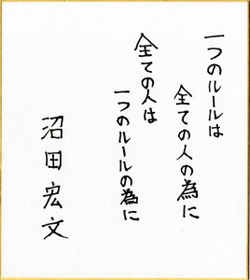 一つのルールは
全ての人の為に
全ての人は
一つのルールの為に
沼田宏文